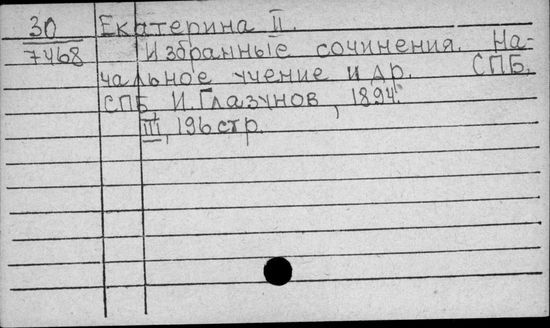 30 Екатерина II.
7468 Избранные сочинения. На-
чальное учение и др. СПБ.
СПБ И. Глазунов, 1894.
III, 196 стр.